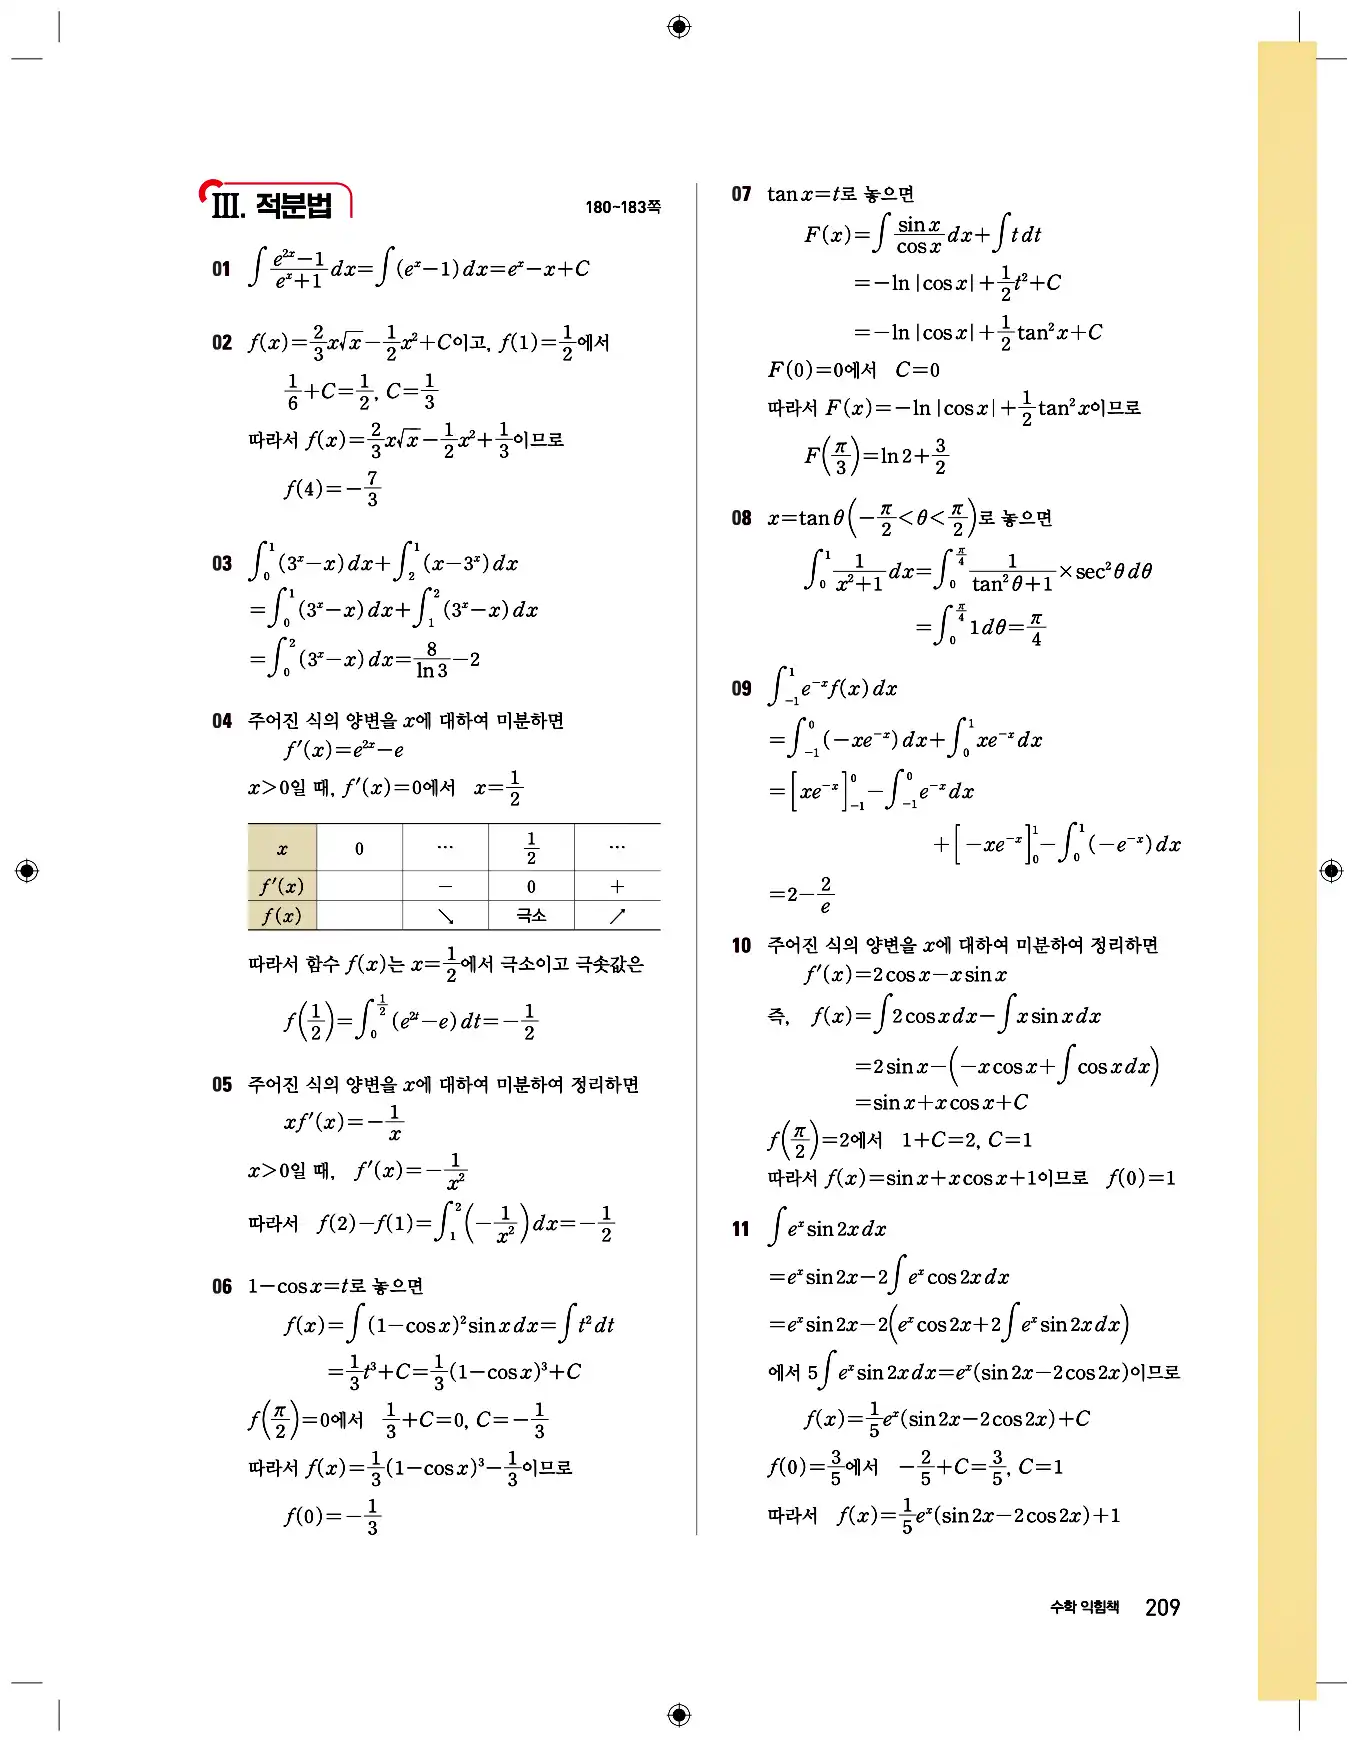 Ⅲ. 적분법
180~183쪽
01 ∫ (e^{2x}−1)/(e^x+1) dx=∫(e^x−1)dx=e^x−x+C
02 f(x)=2/3 x√x−1/2 x²+C이고, f(1)=1/2에서
1/6+C=1/2, C=1/3
따라서 f(x)=2/3 x√x−1/2 x²+1/3이므로
f(4)=−7/3
03 ∫_0^1 (3^x−x)dx+∫_2^1 (x−3^x)dx
=∫_0^1 (3^x−x)dx+∫_1^2 (3^x−x)dx
=∫_0^2 (3^x−x)dx=8/ln3−2
04 주어진 식의 양변을 x에 대하여 미분하면
f′(x)=e^{2x}−e
x>0일 때, f′(x)=0에서 x=1/2
x 0 … 1/2 …
f′(x) − 0 +
f(x) ↘ 극소 ↗
따라서 함수 f(x)는 x=1/2에서 극소이고 극솟값은
f(1/2)=∫_0^{1/2} (e^{2t}−e)dt=−1/2
05 주어진 식의 양변을 x에 대하여 미분하여 정리하면
xf′(x)=−1/x
x>0일 때, f′(x)=−1/x²
따라서 f(2)−f(1)=∫_1^2 (−1/x²)dx=−1/2
06 1−cos x=t로 놓으면
f(x)=∫(1−cos x)²sin x dx=∫t² dt
=1/3 t³+C=1/3(1−cos x)³+C
f(π/2)=0에서 1/3+C=0, C=−1/3
따라서 f(x)=1/3(1−cos x)³−1/3이므로
f(0)=−1/3
07 tan x=t로 놓으면
F(x)=∫ sin x/cos x dx+∫t dt
=−ln|cos x|+1/2 t²+C
=−ln|cos x|+1/2 tan²x+C
F(0)=0에서 C=0
따라서 F(x)=−ln|cos x|+1/2 tan²x이므로
F(π/3)=ln2+3/2
08 x=tan θ(−π/2<θ<π/2)로 놓으면
∫_0^1 1/(x²+1) dx=∫_0^{π/4} 1/(tan²θ+1)×sec²θ dθ
=∫_0^{π/4} 1dθ=π/4
09 ∫_{−1}^1 e^{−x}f(x)dx
=∫_{−1}^0 (−xe^{−x})dx+∫_0^1 xe^{−x}dx
=[xe^{−x}]_{−1}^0−∫_{−1}^0 e^{−x}dx
+[−xe^{−x}]_0^1−∫_0^1 (−e^{−x})dx
=2−2/e
10 주어진 식의 양변을 x에 대하여 미분하여 정리하면
f′(x)=2cos x−x sin x
즉, f(x)=∫2cos x dx−∫x sin x dx
=2sin x−(−x cos x+∫cos x dx)
=sin x+x cos x+C
f(π/2)=2에서 1+C=2, C=1
따라서 f(x)=sin x+x cos x+1이므로 f(0)=1
11 ∫e^x sin 2x dx
=e^x sin 2x−2∫e^x cos 2x dx
=e^x sin 2x−2(e^x cos 2x+2∫e^x sin 2x dx)
에서 5∫e^x sin 2x dx=e^x(sin 2x−2cos 2x)이므로
f(x)=1/5 e^x(sin 2x−2cos 2x)+C
f(0)=3/5에서 −2/5+C=3/5, C=1
따라서 f(x)=1/5 e^x(sin 2x−2cos 2x)+1
수학 익힘책 209